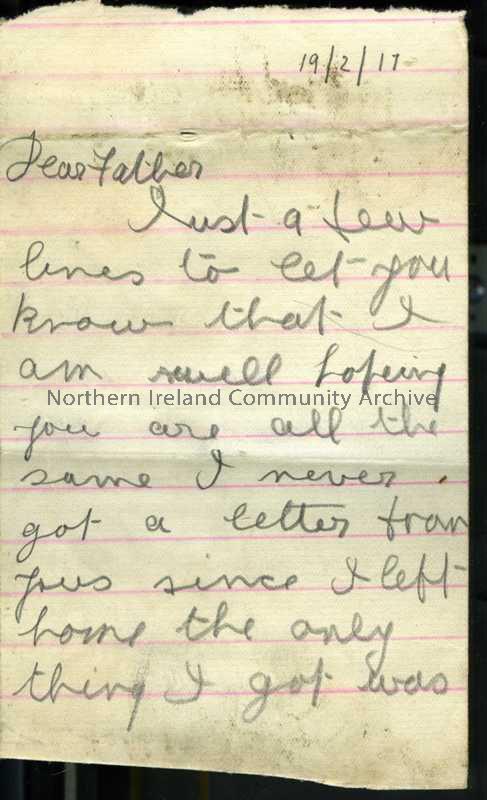 19/2/17
Dear Father
Just a few
lines to let you
know that I
am well hoping
Northern Ireland Community Archive
you are all the
same I never
got a letter from
yous since I left
home the only
thing I got was